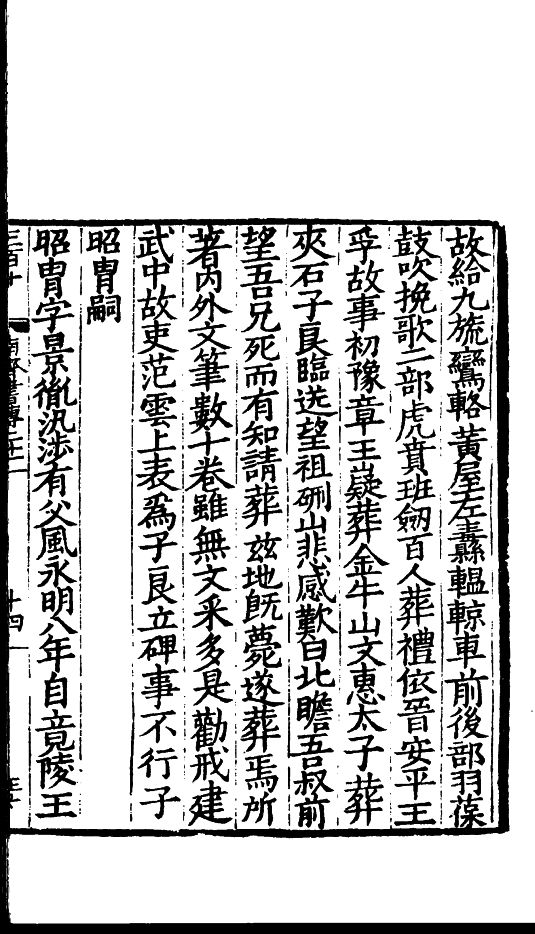 故給九旒鸞輅黃屋左纛轀輬車前後部羽葆
鼓吹挽歌二部虎賁班劒百人葬禮依晉安平王
孚故事初豫章王嶷葬金牛山文惠太子葬
夾石子良臨送望祖硎山悲感歎曰北瞻吾叔前
望吾兄死而有知請葬兹地旣薨遂葬焉所
著內外文筆數十卷雖無文釆多是勸戒建
武中故吏范雲上表爲子良立碑事不行子
昭胄嗣
昭胄字景胤汎涉有父風永明八年自竟陵王
南齊書傳二十一
十四